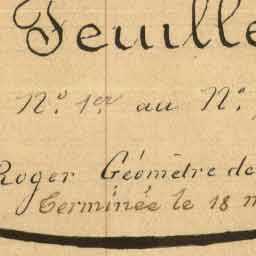 Feuille
N.º 1er au N.º
Roger Géomètre de
Terminée le 18